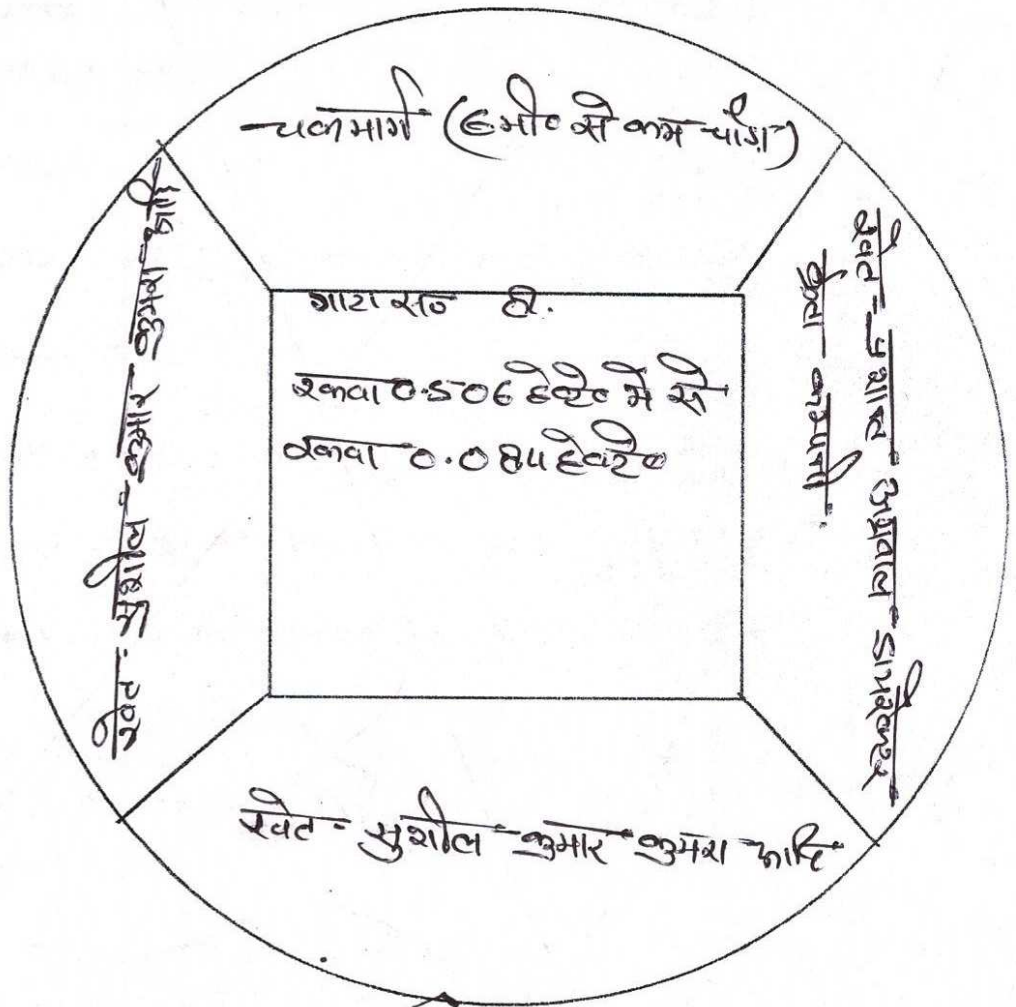 चकमार्ग (६मी० से कम चौड़ा)
खेत - सुशील कुमार कुमरा आदि
गाटा सं०
रकवा 0.506 हेक्टे० में से
रकवा 0.084 हेक्टे०
खेत - प्रशान्त अग्रवाल डायरेक्टर
कम्पनी.
खेत - सुशील कुमार कुमरा आदि